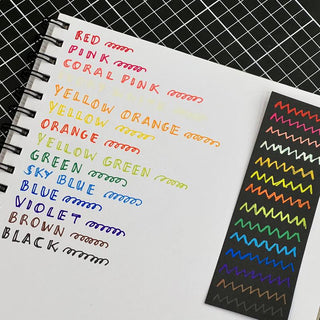 RED
PINK
CORAL PINK
YELLOW ORANGE
YELLOW
ORANGE
YELLOW GREEN
GREEN
SKY BLUE
BLUE
VIOLET
BROWN
BLACK